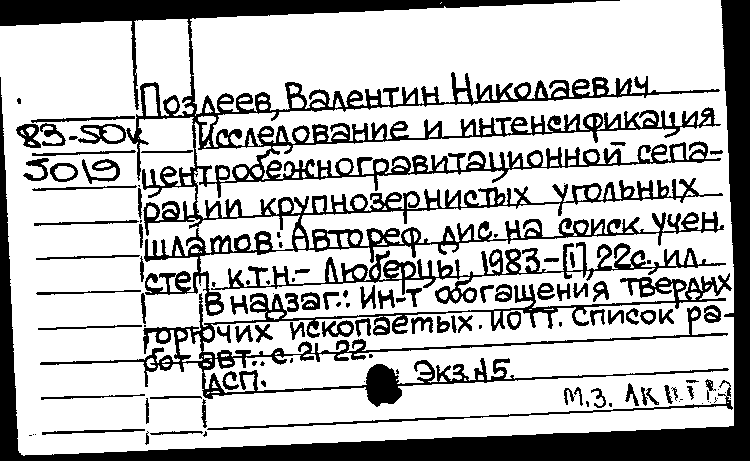 Поздеев, Валентин Николаевич.
83-50к Исследование и интенсификация
5019 центробежногравитационной сепа-
рации крупнозернистых угольных
шламов: Автореф. дис. на соиск. учен.
степ. к.т.н.- Люберцы, 1983.-[1], 22с., ил.
В надзаг.: Ин-т обогащения твердых
горючих ископаемых. ИОТТ. Список ра-
бот авт.: с. 21-22.
ДСП. Экз. 15.
М.З.